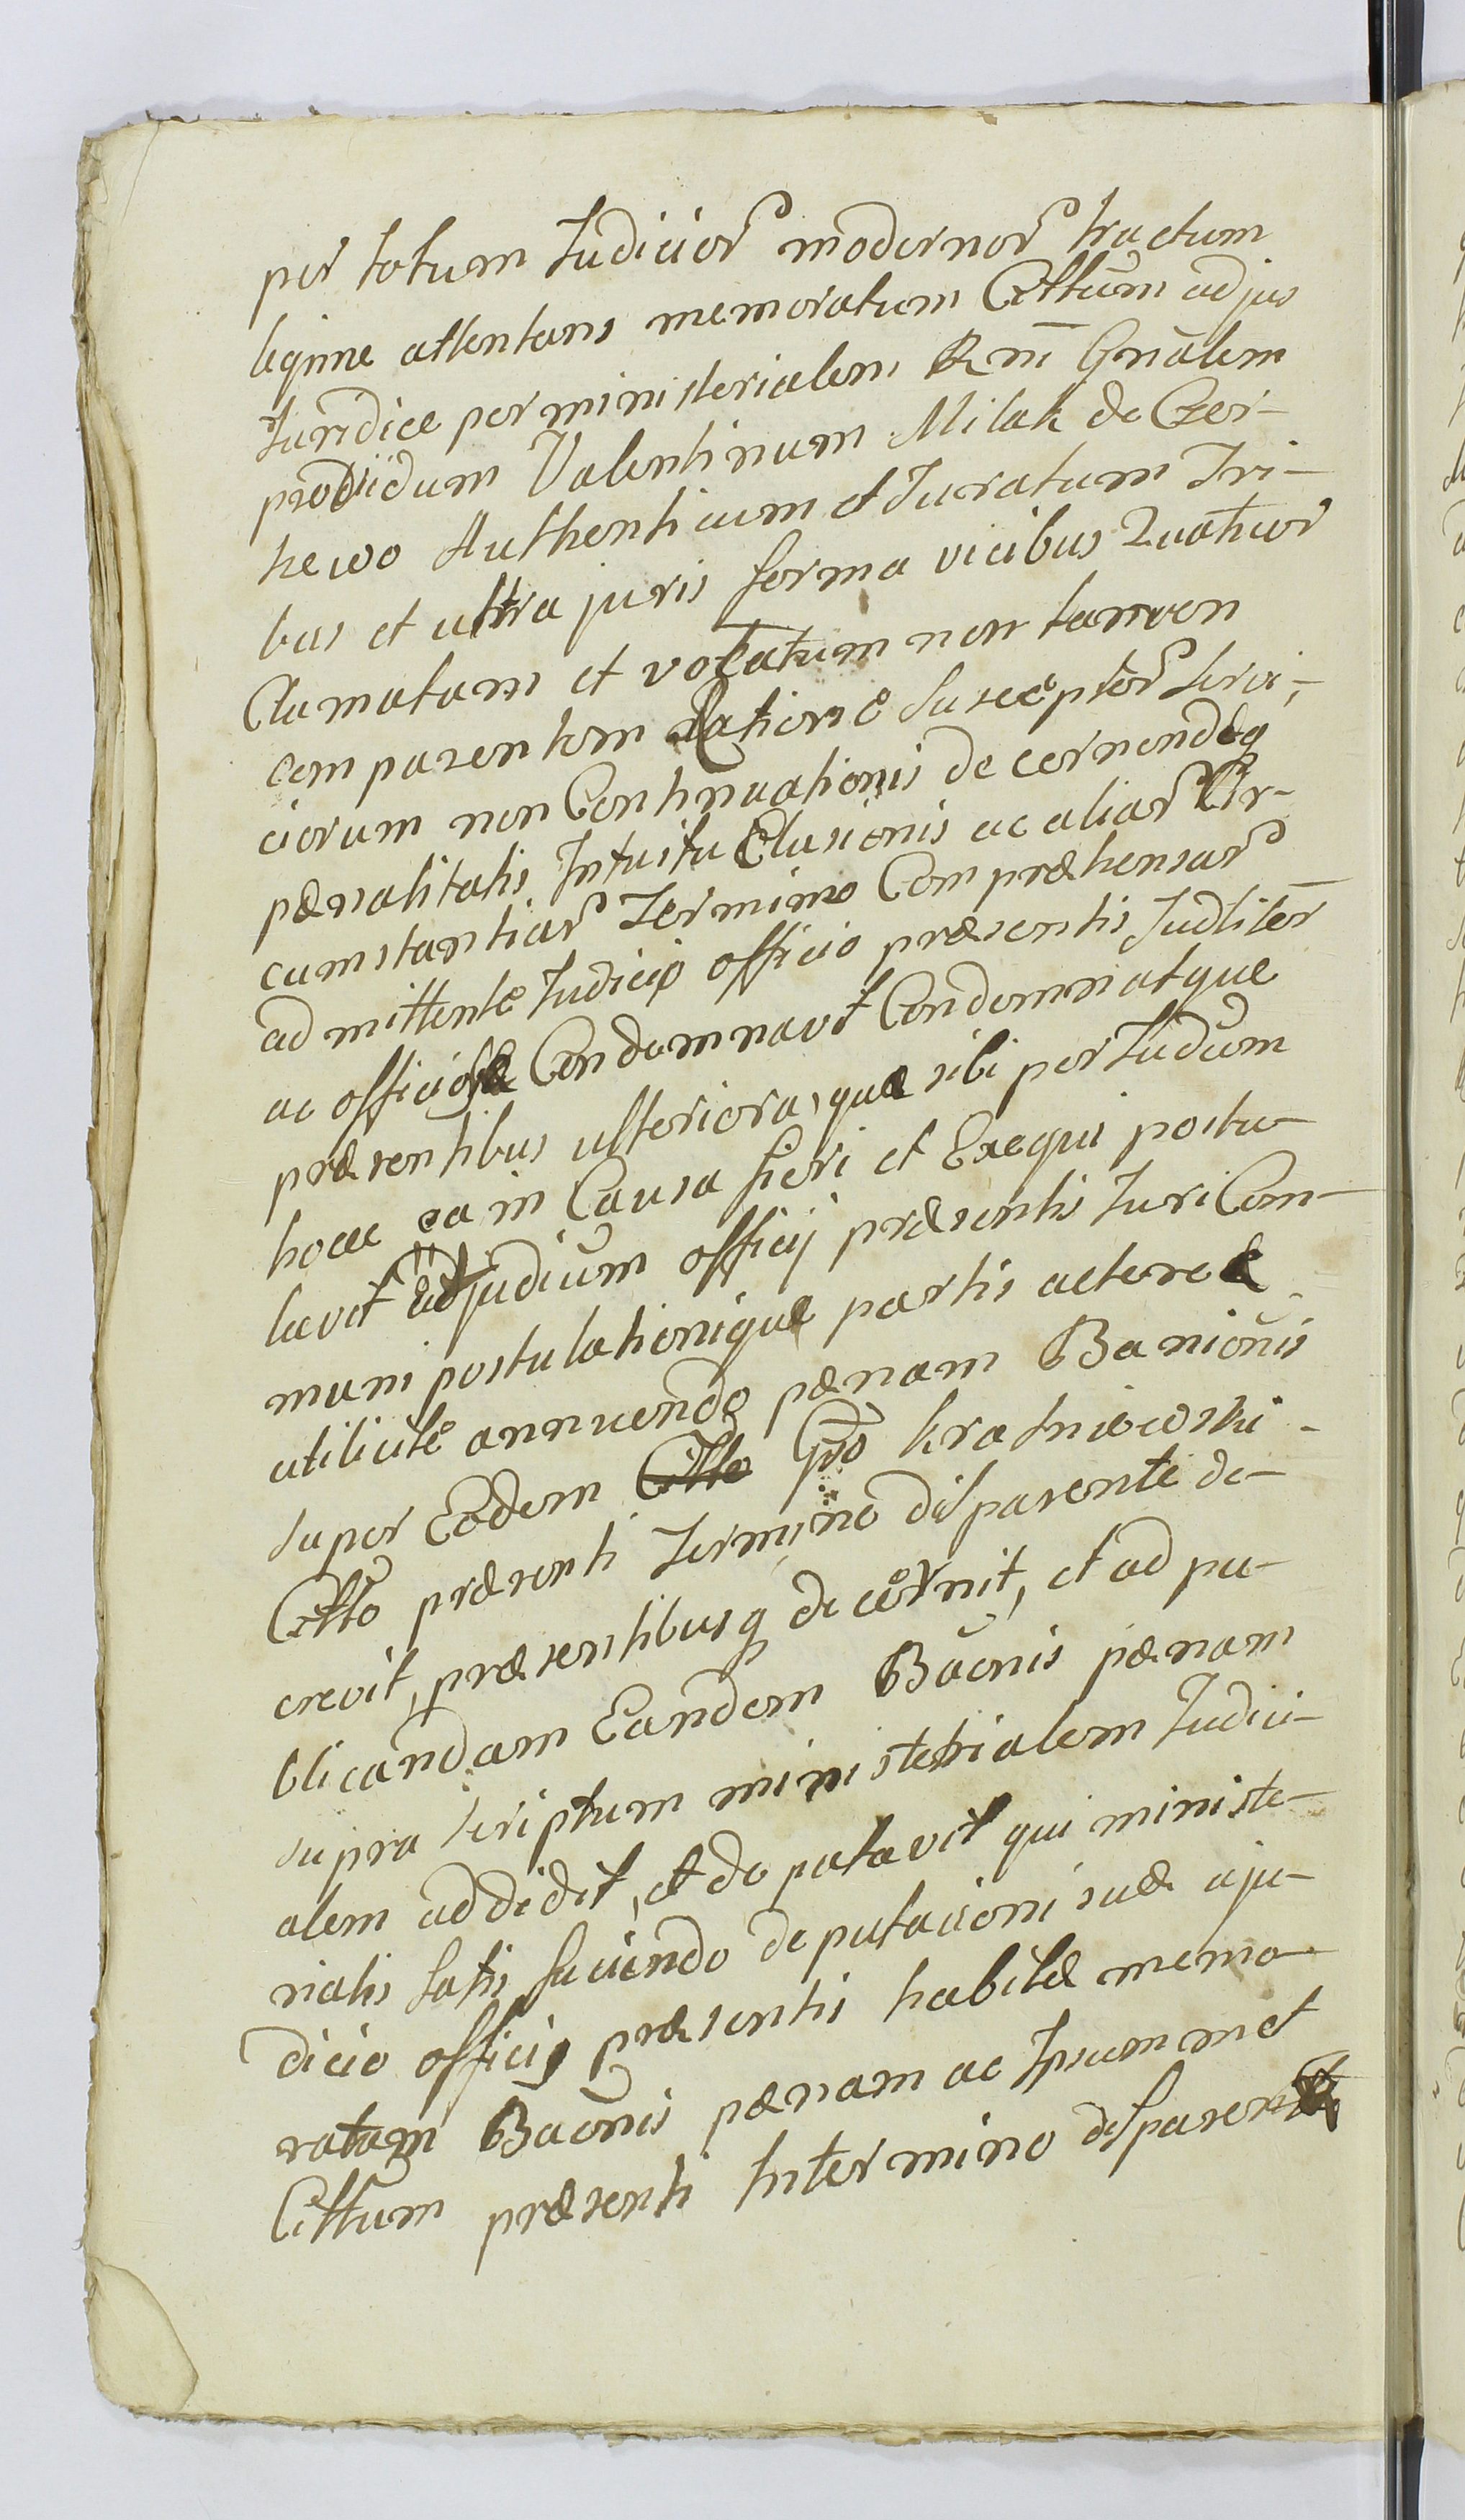 per totum Judicior̃ modernor̃ tractum
legitime attentans memoratum Cittum̃ ad jus
Juridice per ministerialem Rñi Gñalem
prodvidum Valentinum Milak de Czer-
kewo Authenticum et Juratum Tri-
bus et ultra juris forma vicibus Quatuor
Clamatum et vocatum non tamen
comparentem Ratione susceptor̃ servi-
ciorum non Continuationis decernendæq
pœnalitatis Intuitu Elusionis ac aliar̃ Cir-
cumstantiar̃ Termino Compræhensar̃
admittente Judicio officio præsentis Judliter̃
ac officiose Condemnavit Condemnatque
præsentibus ulteriora, quæ sibi per Judium̃
hocce ea in Causa fieri et Exequi postu-
lavit Judium̃ officij præsentis Juri Com-
muni postulationique partis actoreæ
utiliculē annuendo pœnam Baniõnis
super Eodem Gñõ Kratniewski
Citto præsenti Termino disparente de-
crevit, præsentibusq decernit, et ad pu-
blicandam Eandem Bãonis pœnam
supra scriptum ministerialem Judici-
alem addidit, et deputavit qui ministe-
rialis satis faciendo deputationi suæ a ju-
dicio officij præsentis habitæ memo-
ratam Bãonis pœnam ac Ipsummet
Cittum præsenti In termino disparen